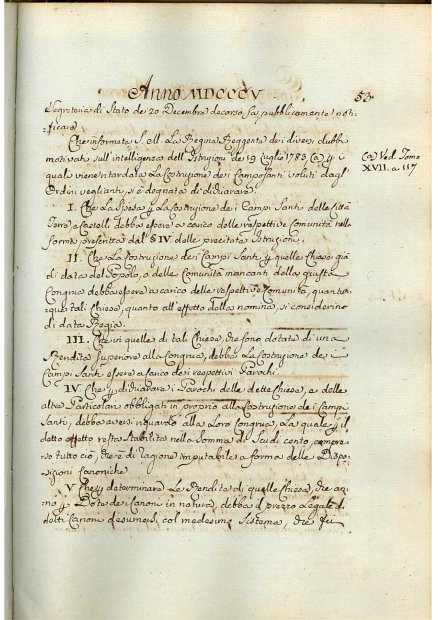 Anno MDCCCV
53
Segretaria di Stato de 20 Decembre decorso fa pubblicamente noti=
=ficare
Che informata S. M. La Regina Reggente dei diversi dubbi
motivati sull'intelligenza dell'Istruzioni de 19 Luglio 1783 (a) p i
quali viene ritardata La Costruzione dei Campisanti voluti dagl'
Ordini veglianti si è degnata di dichiarare
(a) Ved. Tomo
XVII. a 117
I. Che La Spesa p La Costruzione dei Campi Santi delle Città
Terre, e Castelli debba essere a carico delle respettive Comunità nelle
forme prescritte dal § IV. delle precitate Istruzioni.
II. Che La Costruzione dei Campi Santi p quelle Chiese già
di data del Popolo, o delle Comunità mancanti della giusta
Congrua debba essere a carico delle respettive Comunità, quantun=
que tali Chiese, quanto all'effetto della nomina, si considerino
di data Regia.
III. Che in quelle di tali Chiese, che sono dotate di una
Rendita superiore alla Congrua, debba La Costruzione dei
Campi Santi essere a carico dei respettivi Parochi.
IV. Che p dichiarare i Parochi delle dette Chiese, o delle
altre Particolari obbligati in proprio alla Costruzione dei Campi
Santi, debba aversi riguardo alla Loro Congrua, La quale p il
detto effetto resta stabilita nella somma di Scudi cento, compre=
so tutto ciò, che è di ragione imputabile a forma delle Dispo=
sizioni Canoniche.
V. Che p determinare Le Rendite di quelle Chiese, che an=
no p Dote dei Canoni in natura, debba il prezzo Legale di
detti Canoni desumersi col medesimo sistema, che fu